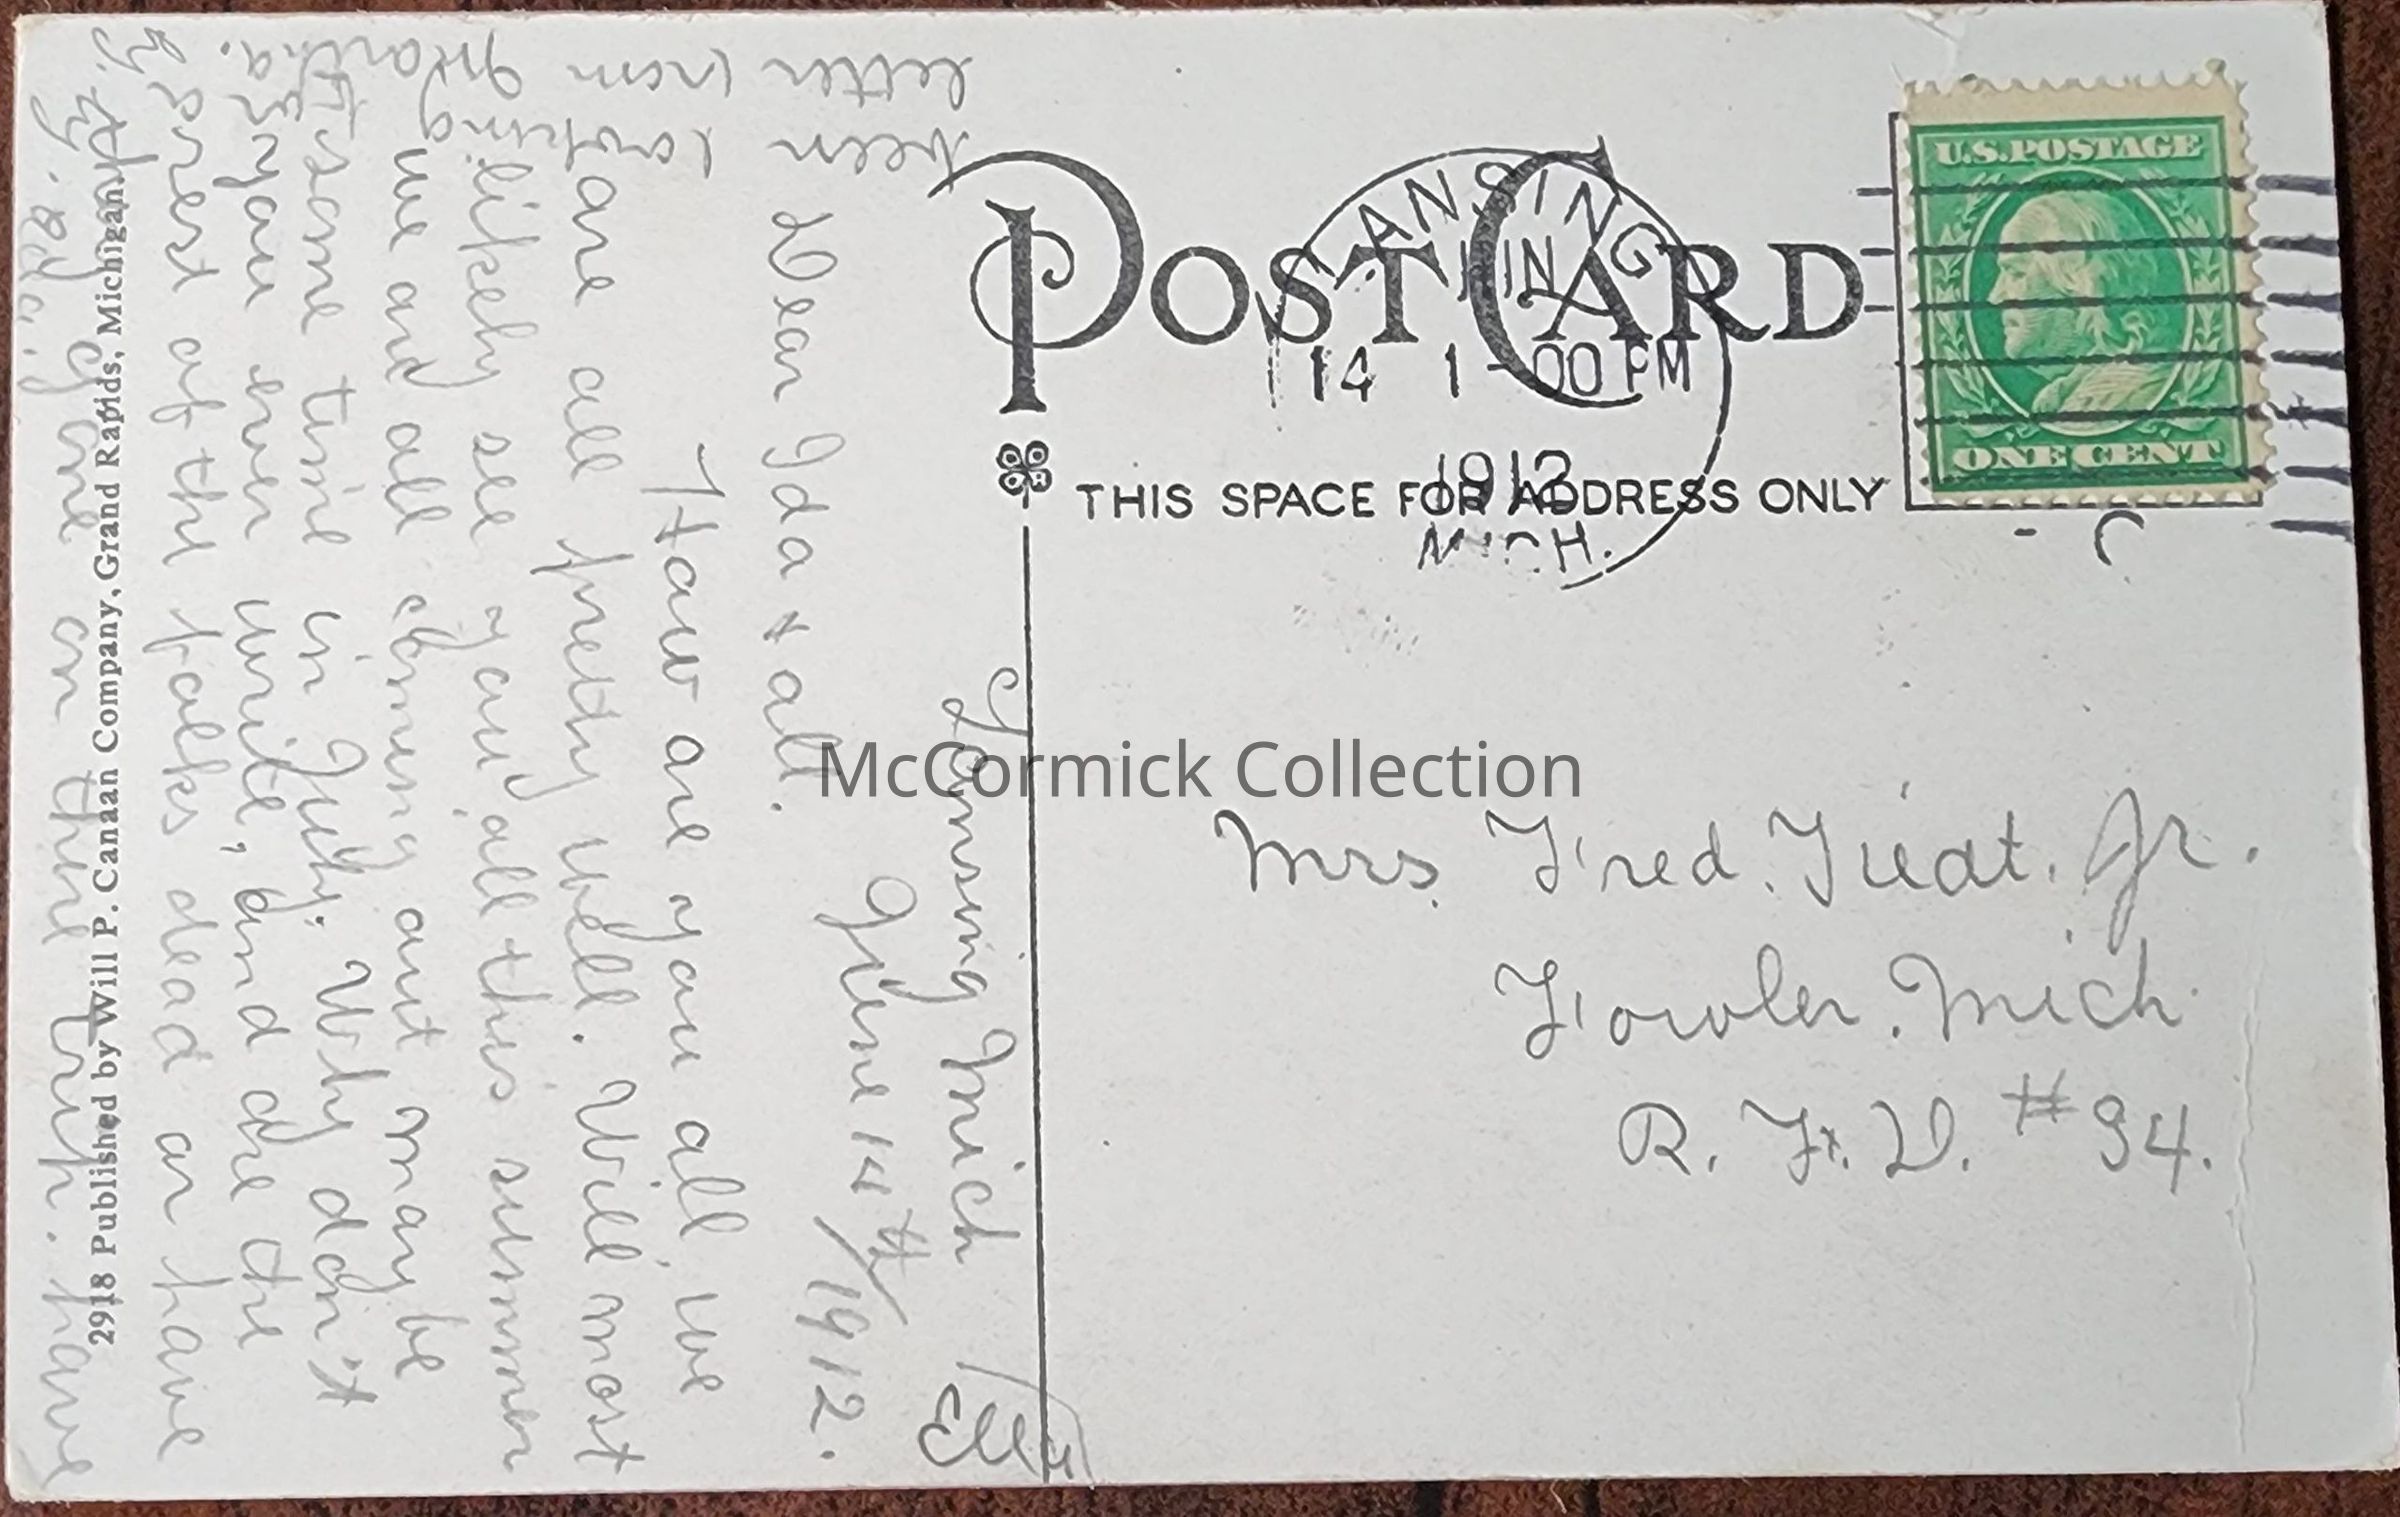 POST CARD
THIS SPACE FOR ADDRESS ONLY
U.S. POSTAGE
ONE CENT
LANSING
JUN
14 1-00 PM
1912
MICH.
Mrs. Fred. Treat. Jr.
Fowler. Mich.
R. F. D. #94.
Lansing Mich
June 14th/1912.
Dear Ida & all.
How are you all, we
are all pretty well. Will most
likely see you all this summer
we and all coming out may be
some time in July. Why don't
you ever write, and are the
rest of the folks dead or have
they gone on their trip. have
been looking
letter from Martha.
2918 Published by Will P. Canaan Company, Grand Rapids, Michigan.
McCormick Collection